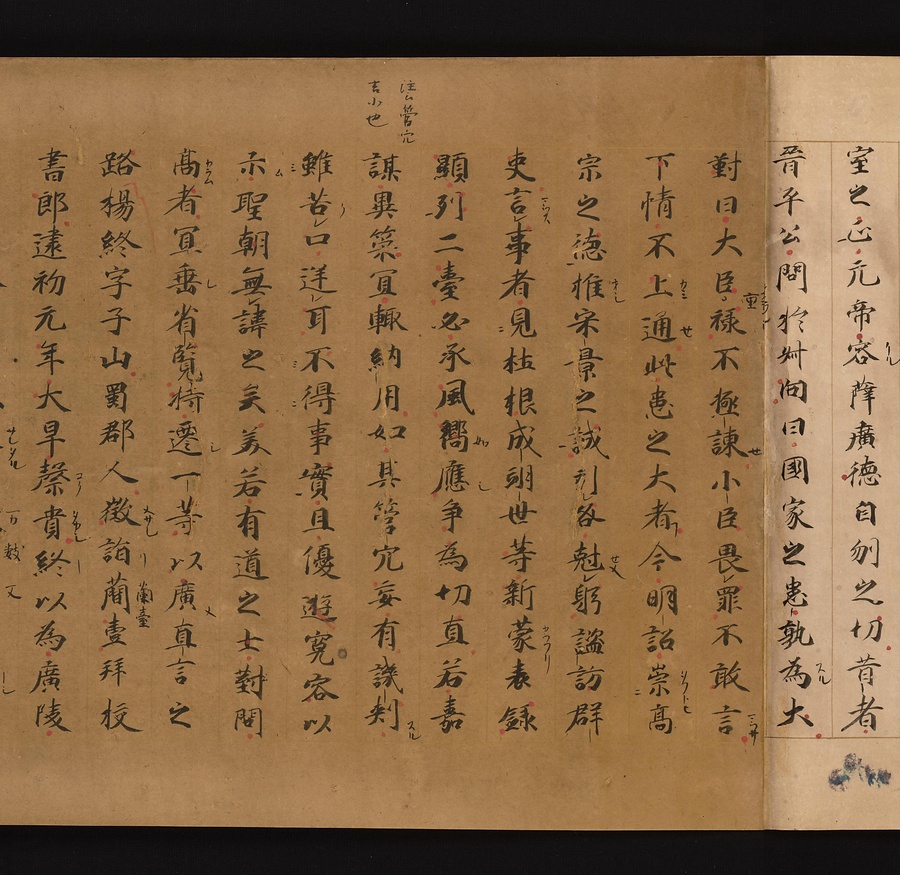 室之正元帝容薛廣德自刎之切昔者
晉平公問於叔向曰國家之患孰為大
對曰大臣祿不極諫小臣畏罪不敢言
下情不上通此患之大者今明詔崇高
宗之德推宋景之誠引咎尅躬諮訪群
吏言事者見杜根成翊世等新蒙表錄
顯列二臺必承風嚮應爭為切直若嘉
謀異策冝輙納用如其管穴妄有譏刾
雖苦口逆耳不得事實且優遊寬容以
示聖朝無諱之美若有道之士對問
高者冝垂省覽特遷一等以廣直言之
路楊終字子山蜀郡人徵詣蘭臺拜校
書郎建初元年大旱榖貴終以為廣陵
注管穴
言小也
重
蘭臺